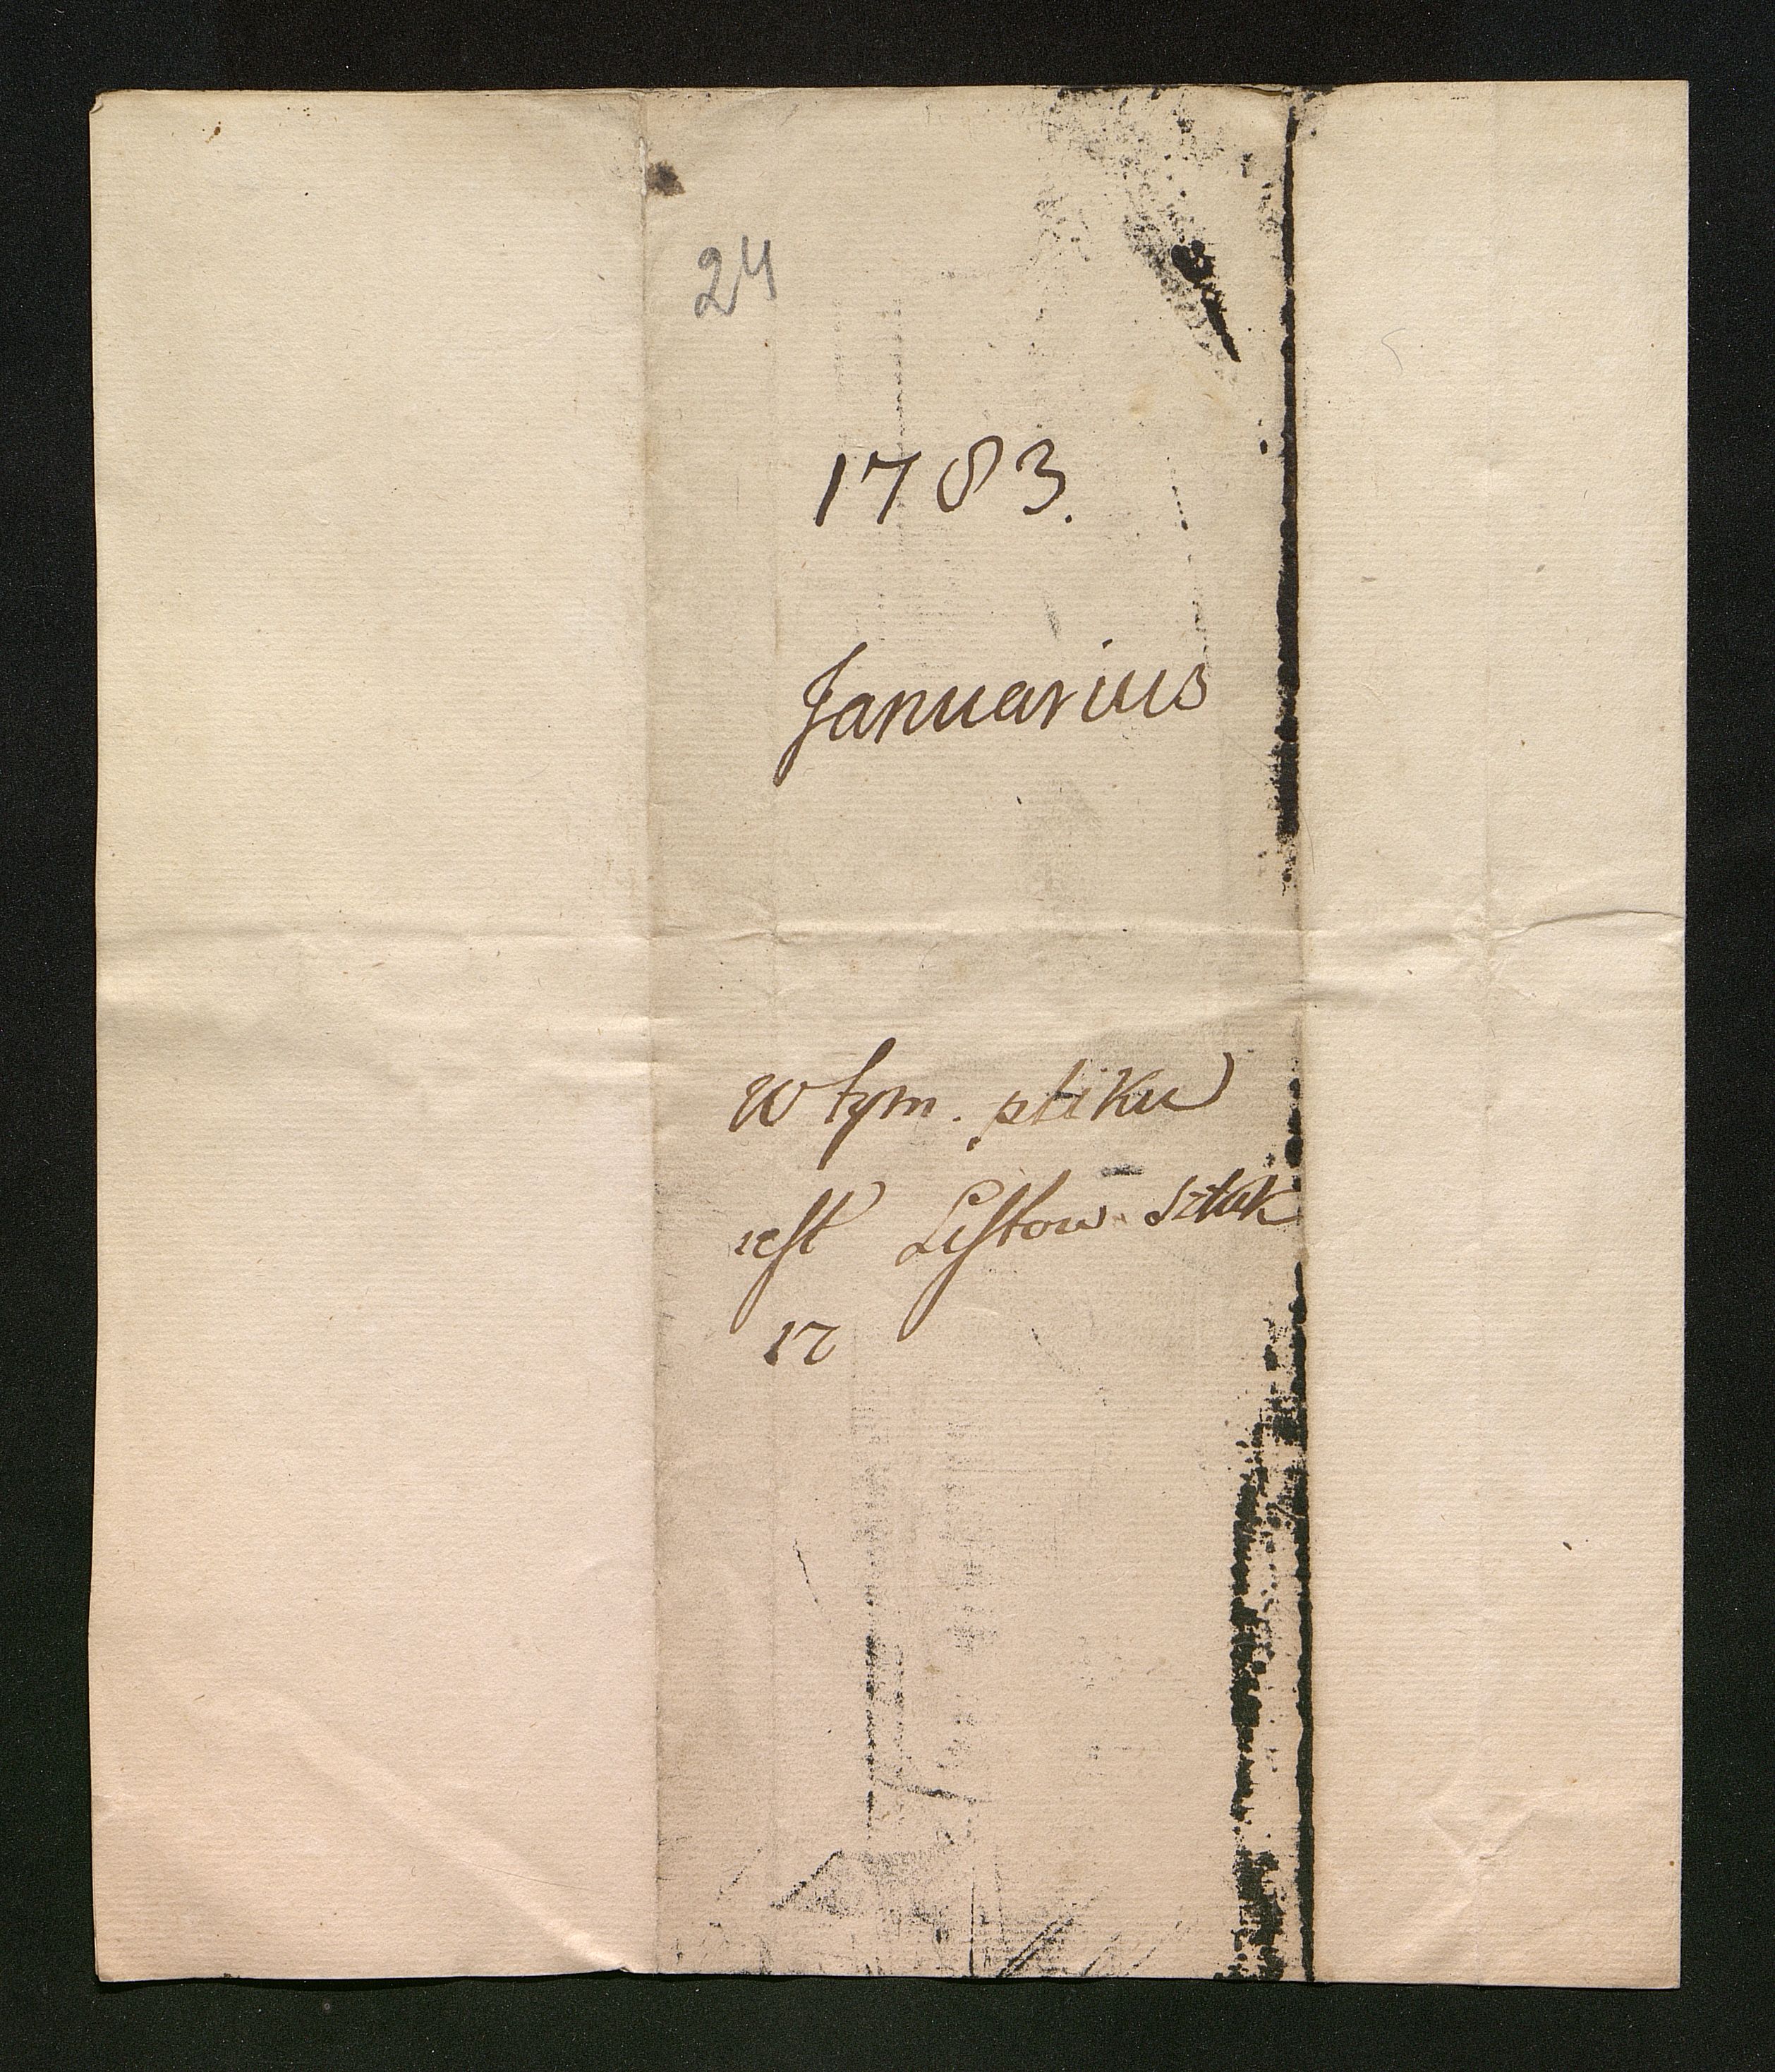 24
1783.
Januarius
W tym. pliku
iest Listow. Sztuk
17